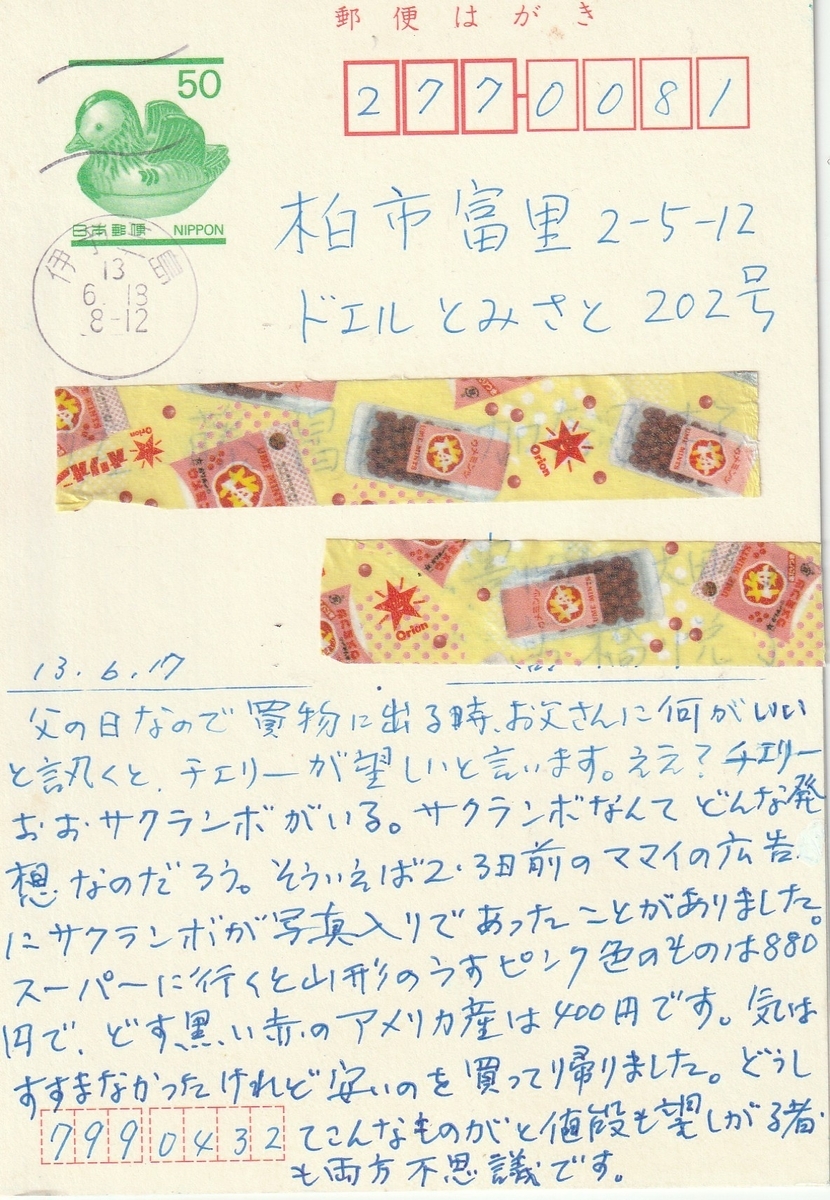 郵便はがき
50
日本郵便 NIPPON
277-0081
13
6.18
8-12
柏市富里2-5-12
ドエルとみさと202号
Orion
UME MINTS
ウメミンツ
Orion
UME MINTS
ウメミンツ
13.6.17
父の日なので買物に出る時、お父さんに何がいい
と訊くと、チェリーが望しいと言います。ええ?チェリー
おおサクランボがいる。サクランボなんてどんな発
想なのだろう。そういえば2.3日前のママイの広告
にサクランボが写真入りであったことがありました。
スーパーに行くと山形のうすピンク色のものは880
円で、どす黒い赤のアメリカ産は400円です。気は
すすまなかったけれど安いのを買って帰りました。どうし
てこんなものがと値段も望しがる者
も両方不思議です。
7990432